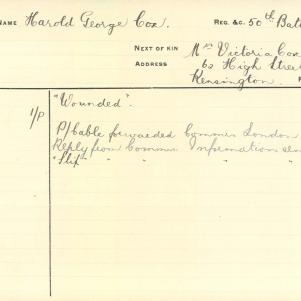 NAME Harold George Cox. REG. &C. 50th Batt
NEXT OF KIN Mrs Victoria Cox
ADDRESS 62 High Street
Kensington.
"Wounded".
1/P
P/bable forwarded Commr London
Reply from Commr Information sen
"Slip" " " " "